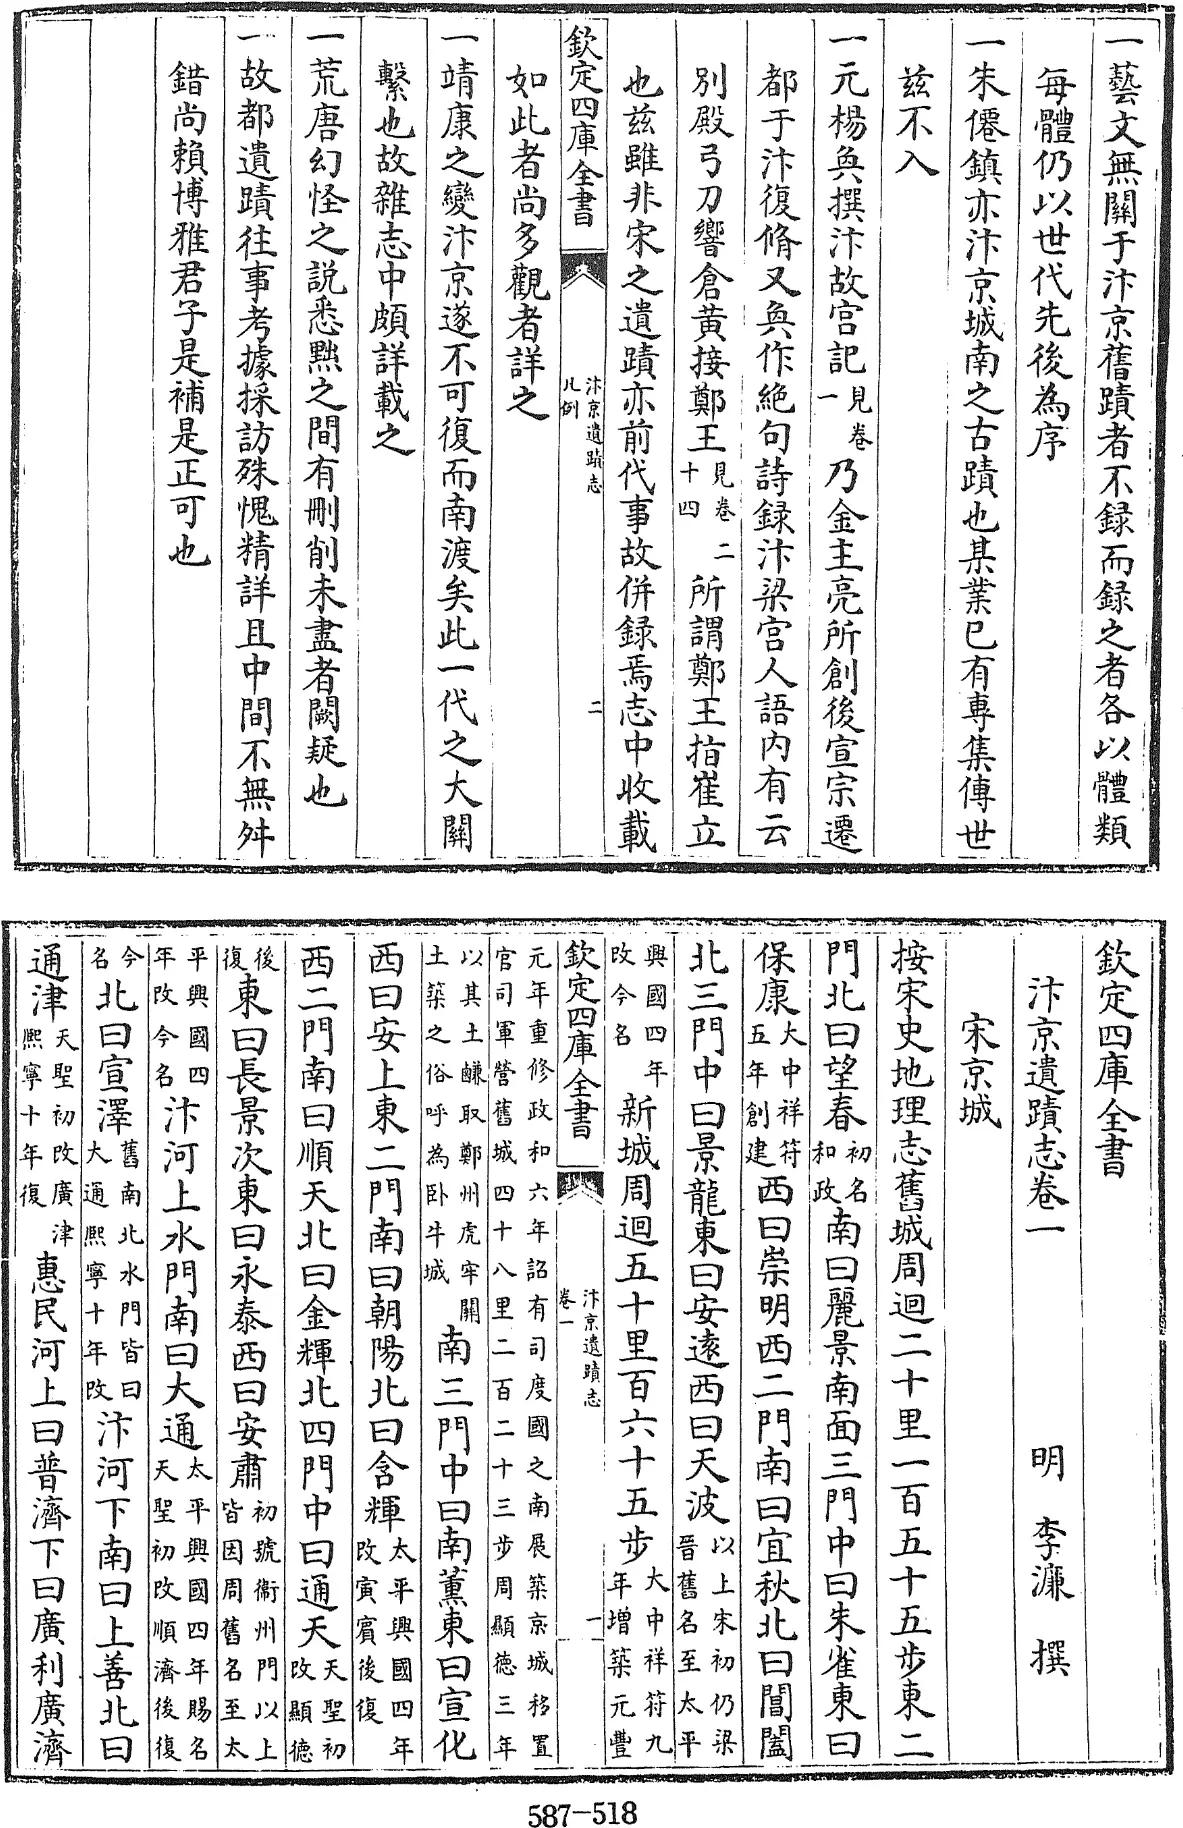 一藝文無關于汴京舊蹟者不録而録之者各以體類
每體仍以世代先後為序
一朱僊鎮亦汴京城南之古蹟也某業已有專集傳世
兹不入
一元楊奐撰汴故宫記見卷一乃金主亮所創後宣宗遷
都于汴復脩又奐作絶句詩録汴梁宫人語内有云
別殿弓刀響倉黄接鄭王見卷二十四所謂鄭王指崔立
也兹雖非宋之遺蹟亦前代事故併録焉志中收載
欽定四庫全書 汴京遺蹟志 凡例 二
如此者尚多觀者詳之
一靖康之變汴京遂不可復而南渡矣此一代之大關
繫也故雜志中頗詳載之
一荒唐幻怪之説悉黜之間有刪削未盡者闕疑也
一故都遺蹟往事考據採訪殊愧精詳且中間不無舛
錯尚賴博雅君子是補是正可也
欽定四庫全書
汴京遺蹟志卷一
明 李濂 撰
宋京城
按宋史地理志舊城周迴二十里一百五十五步東二
門北曰望春初名和政南曰麗景南面三門中曰朱雀東曰
保康大中祥符五年創建西曰崇明西二門南曰宜秋北曰閶闔
北三門中曰景龍東曰安逺西曰天波以上宋初仍梁晉舊名至太平
興國四年改今名新城周迴五十里百六十五步大中祥符九年增築元豐
欽定四庫全書 汴京遺蹟志 卷一 一
元年重修政和六年詔有司度國之南展築京城移置官司軍營舊城四十八里二百二十三步周顯德三年
以其土鹻取鄭州虎牢關土築之俗呼為卧牛城南三門中曰南薰東曰宣化
西曰安上東二門南曰朝陽北曰含輝太平興國四年改寅賓後復
西二門南曰順天北曰金輝北四門中曰通天天聖初改顯德
後復東曰長景次東曰永泰西曰安肅初號衛州門以上皆因周舊名至太
平興國四年改今名汴河上水門南曰大通太平興國四年賜名天聖初改順濟後復
今名北曰宣澤舊南北水門皆曰大通熙寧十年改汴河下南曰上善北曰
通津天聖初改廣津熙寧十年復惠民河上曰普濟下曰廣利廣濟
587-518